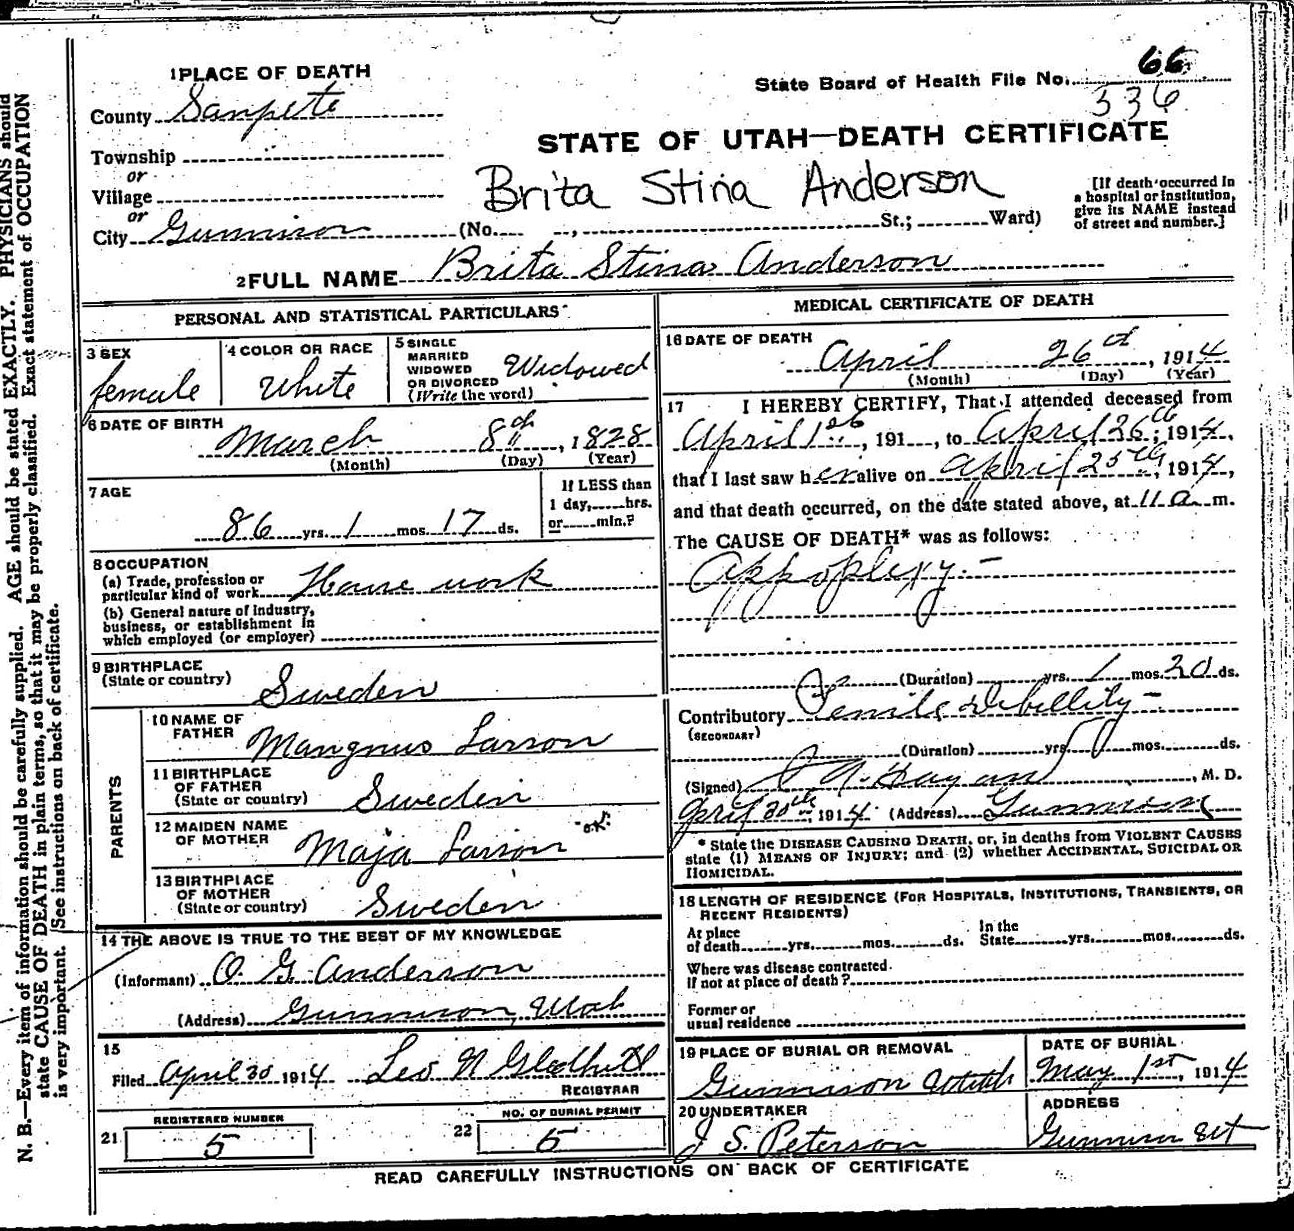 66
1 PLACE OF DEATH
State Board of Health File No.
336
County Sanpete
STATE OF UTAH—DEATH CERTIFICATE
Township
or
Village
Brita Stina Anderson
[If death occurred in
a hospital or institution,
give its NAME instead
of street and number.]
or
City Gunnison (No. , St.; Ward)
2 FULL NAME Brita Stina Anderson
PERSONAL AND STATISTICAL PARTICULARS
3 SEX
female
4 COLOR OR RACE
White
5 SINGLE
MARRIED
WIDOWED
OR DIVORCED
(Write the word)
Widowed
6 DATE OF BIRTH
March 8th, 1828
(Month) (Day) (Year)
7 AGE
86 yrs. 1 mos. 17 ds.
If LESS than
1 day, hrs.
or min.?
8 OCCUPATION
(a) Trade, profession or
particular kind of work House work
(b) General nature of industry,
business, or establishment in
which employed (or employer)
9 BIRTHPLACE
(State or country)
Sweden
PARENTS
10 NAME OF
FATHER
Mangnus Larson
11 BIRTHPLACE
OF FATHER
(State or country)
Sweden
12 MAIDEN NAME
OF MOTHER
Maja Larson "O.K."
13 BIRTHPLACE
OF MOTHER
(State or country)
Sweden
14 THE ABOVE IS TRUE TO THE BEST OF MY KNOWLEDGE
(Informant) O. G. Anderson
(Address) Gunnison, Utah
15
Filed April 30 1914 Leo N Gledhill
REGISTRAR
REGISTERED NUMBER
21 5
NO. OF BURIAL PERMIT
22 5
MEDICAL CERTIFICATE OF DEATH
16 DATE OF DEATH
April 26th, 1914
(Month) (Day) (Year)
17 I HEREBY CERTIFY, That I attended deceased from
April 1st, 191 , to April 26th, 1914,
that I last saw her alive on April 25th, 1914,
and that death occurred, on the date stated above, at 11 a m.
The CAUSE OF DEATH* was as follows:
Appoplexy.—
(Duration) yrs. 1 mos. 20 ds.
Contributory Senile Debility—
(SECONDARY)
(Duration) yrs. mos. ds.
(Signed) Hagan, M. D.
April 30th, 1914 (Address) Gunnison
* State the DISEASE CAUSING DEATH, or, in deaths from VIOLENT CAUSES
state (1) MEANS OF INJURY; and (2) whether ACCIDENTAL, SUICIDAL OR
HOMICIDAL.
18 LENGTH OF RESIDENCE (FOR HOSPITALS, INSTITUTIONS, TRANSIENTS, OR
RECENT RESIDENTS)
At place
of death yrs. mos. ds.
In the
State yrs. mos. ds.
Where was disease contracted
if not at place of death?
Former or
usual residence
19 PLACE OF BURIAL OR REMOVAL
Gunnison Utah
DATE OF BURIAL
May 1st, 1914
20 UNDERTAKER
J S. Peterson
ADDRESS
Gunnison
READ CAREFULLY INSTRUCTIONS ON BACK OF CERTIFICATE
N. B.—Every item of information should be carefully supplied. AGE should be stated EXACTLY. PHYSICIANS should
state CAUSE OF DEATH in plain terms, so that it may be properly classified. Exact statement of OCCUPATION
is very important. (See instructions on back of certificate.